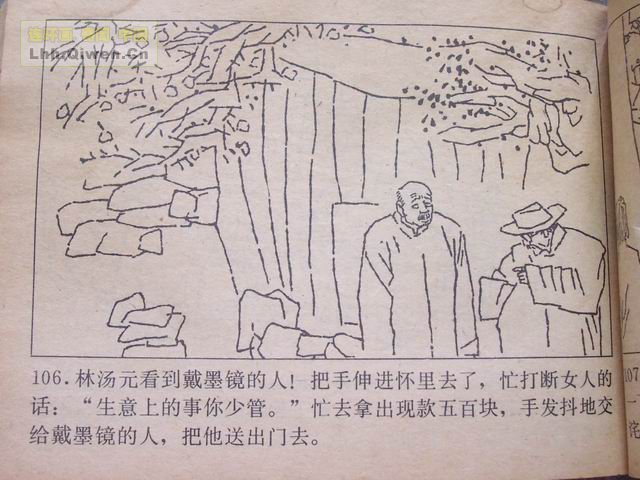 Lhh.Qiwen.Cn
106.林汤元看到戴墨镜的人！把手伸进怀里去了，忙打断女人的
话：“生意上的事你少管。”忙去拿出现款五百块，手发抖地交
给戴墨镜的人，把他送出门去。
107